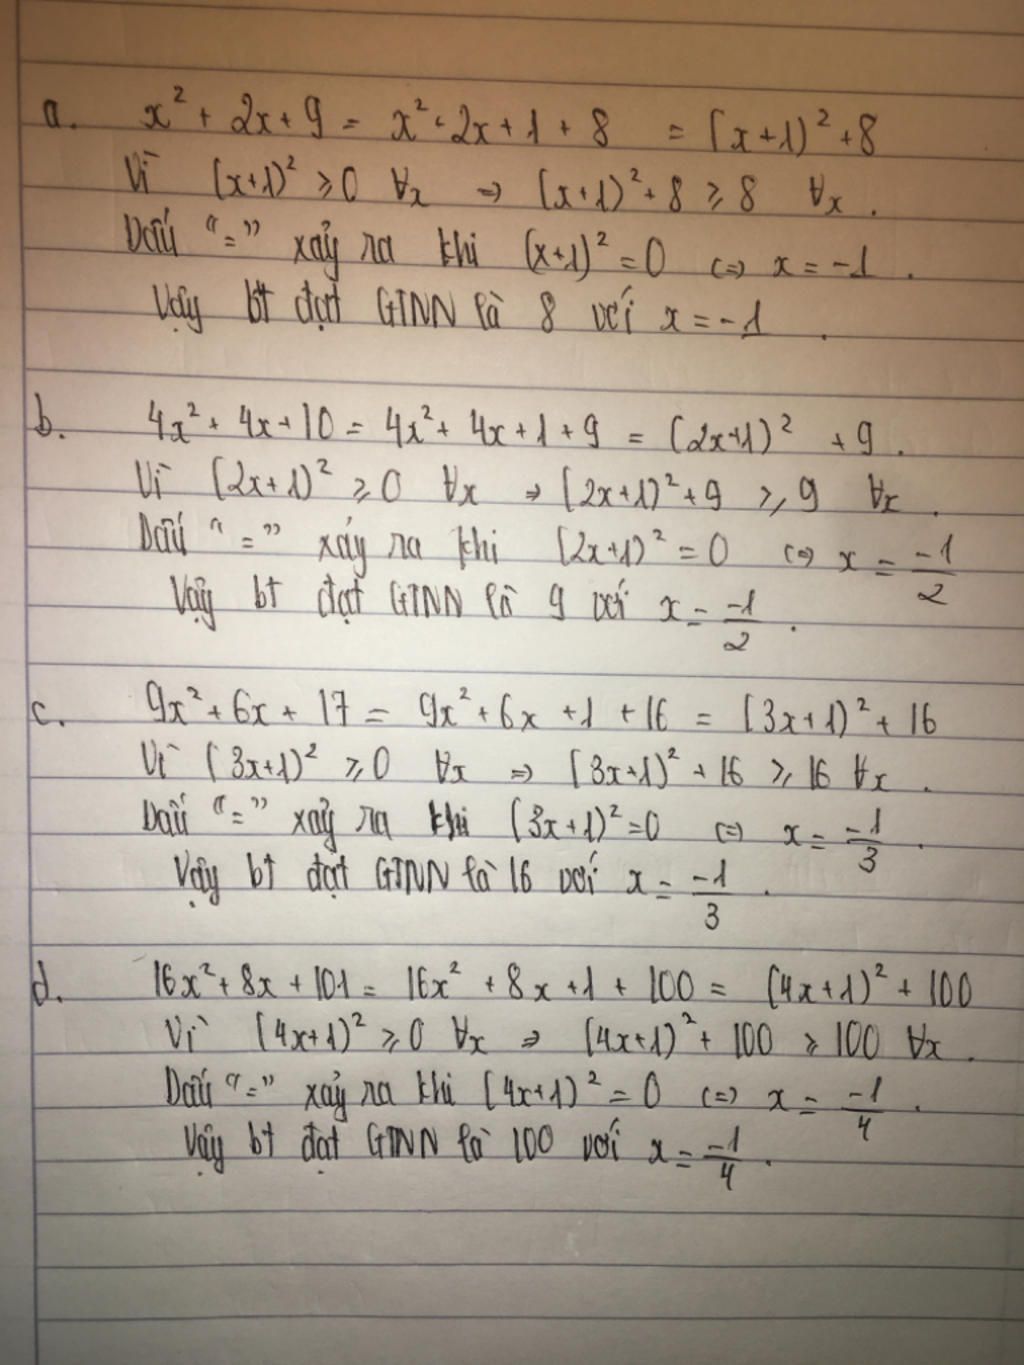 a. x² + 2x + 9 = x² + 2x + 1 + 8 = (x+1)² + 8
Vì (x+1)² ≥ 0 ∀x => (x+1)² + 8 ≥ 8 ∀x .
Dấu "=" xảy ra khi (x+1)² = 0 <=> x = -1 .
Vậy bt đạt GTNN là 8 với x = -1 .
b. 4x² + 4x + 10 = 4x² + 4x + 1 + 9 = (2x+1)² + 9 .
Vì (2x+1)² ≥ 0 ∀x => (2x+1)² + 9 ≥ 9 ∀x .
Dấu "=" xảy ra khi (2x+1)² = 0 <=> x = -1/2
Vậy bt đạt GTNN là 9 với x = -1/2 .
c. 9x² + 6x + 17 = 9x² + 6x + 1 + 16 = (3x+1)² + 16
Vì (3x+1)² ≥ 0 ∀x => (3x+1)² + 16 ≥ 16 ∀x .
Dấu "=" xảy ra khi (3x+1)² = 0 <=> x = -1/3 .
Vậy bt đạt GTNN là 16 với x = -1/3 .
d. 16x² + 8x + 101 = 16x² + 8x + 1 + 100 = (4x+1)² + 100
Vì (4x+1)² ≥ 0 ∀x => (4x+1)² + 100 ≥ 100 ∀x .
Dấu "=" xảy ra khi (4x+1)² = 0 <=> x = -1/4 .
Vậy bt đạt GTNN là 100 với x = -1/4 .